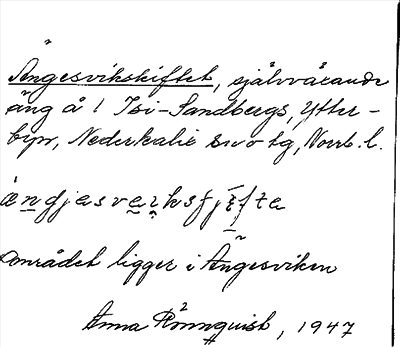 Ängesvikskiftet, självvarande
äng å 1 Isi-Sandbergs, Ytter-
byn, Nederkalix sn o tg, Norrb. l.
området ligger i Ängesviken
Anna Rönnquist, 1947